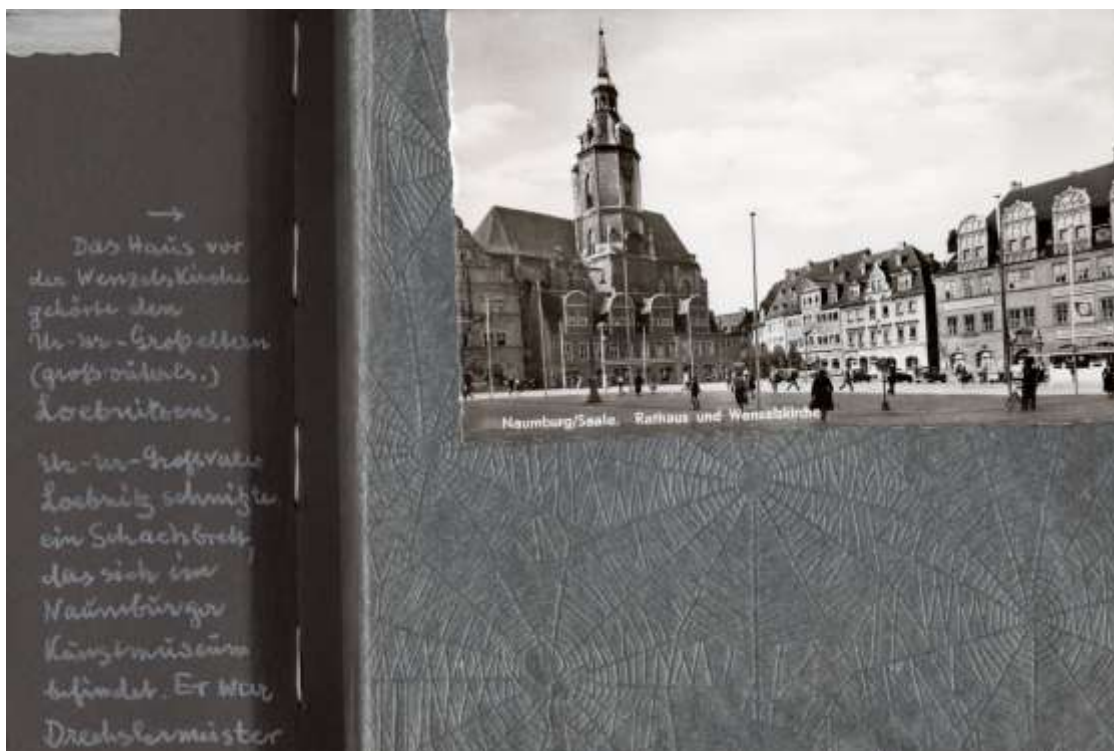 →
Das Haus vor
der Wenzelskirche
gehörte den
Ur-ur-Großeltern
(großväterls.)
Loebnitzens.
Ur-ur-Großvater
Loebnitz schnitzte
ein Schachbrett,
das sich im
Naumburger
Kunstmuseum
befindet. Er war
Drechslermeister
Naumburg/Saale. Rathaus und Wenzelskirche